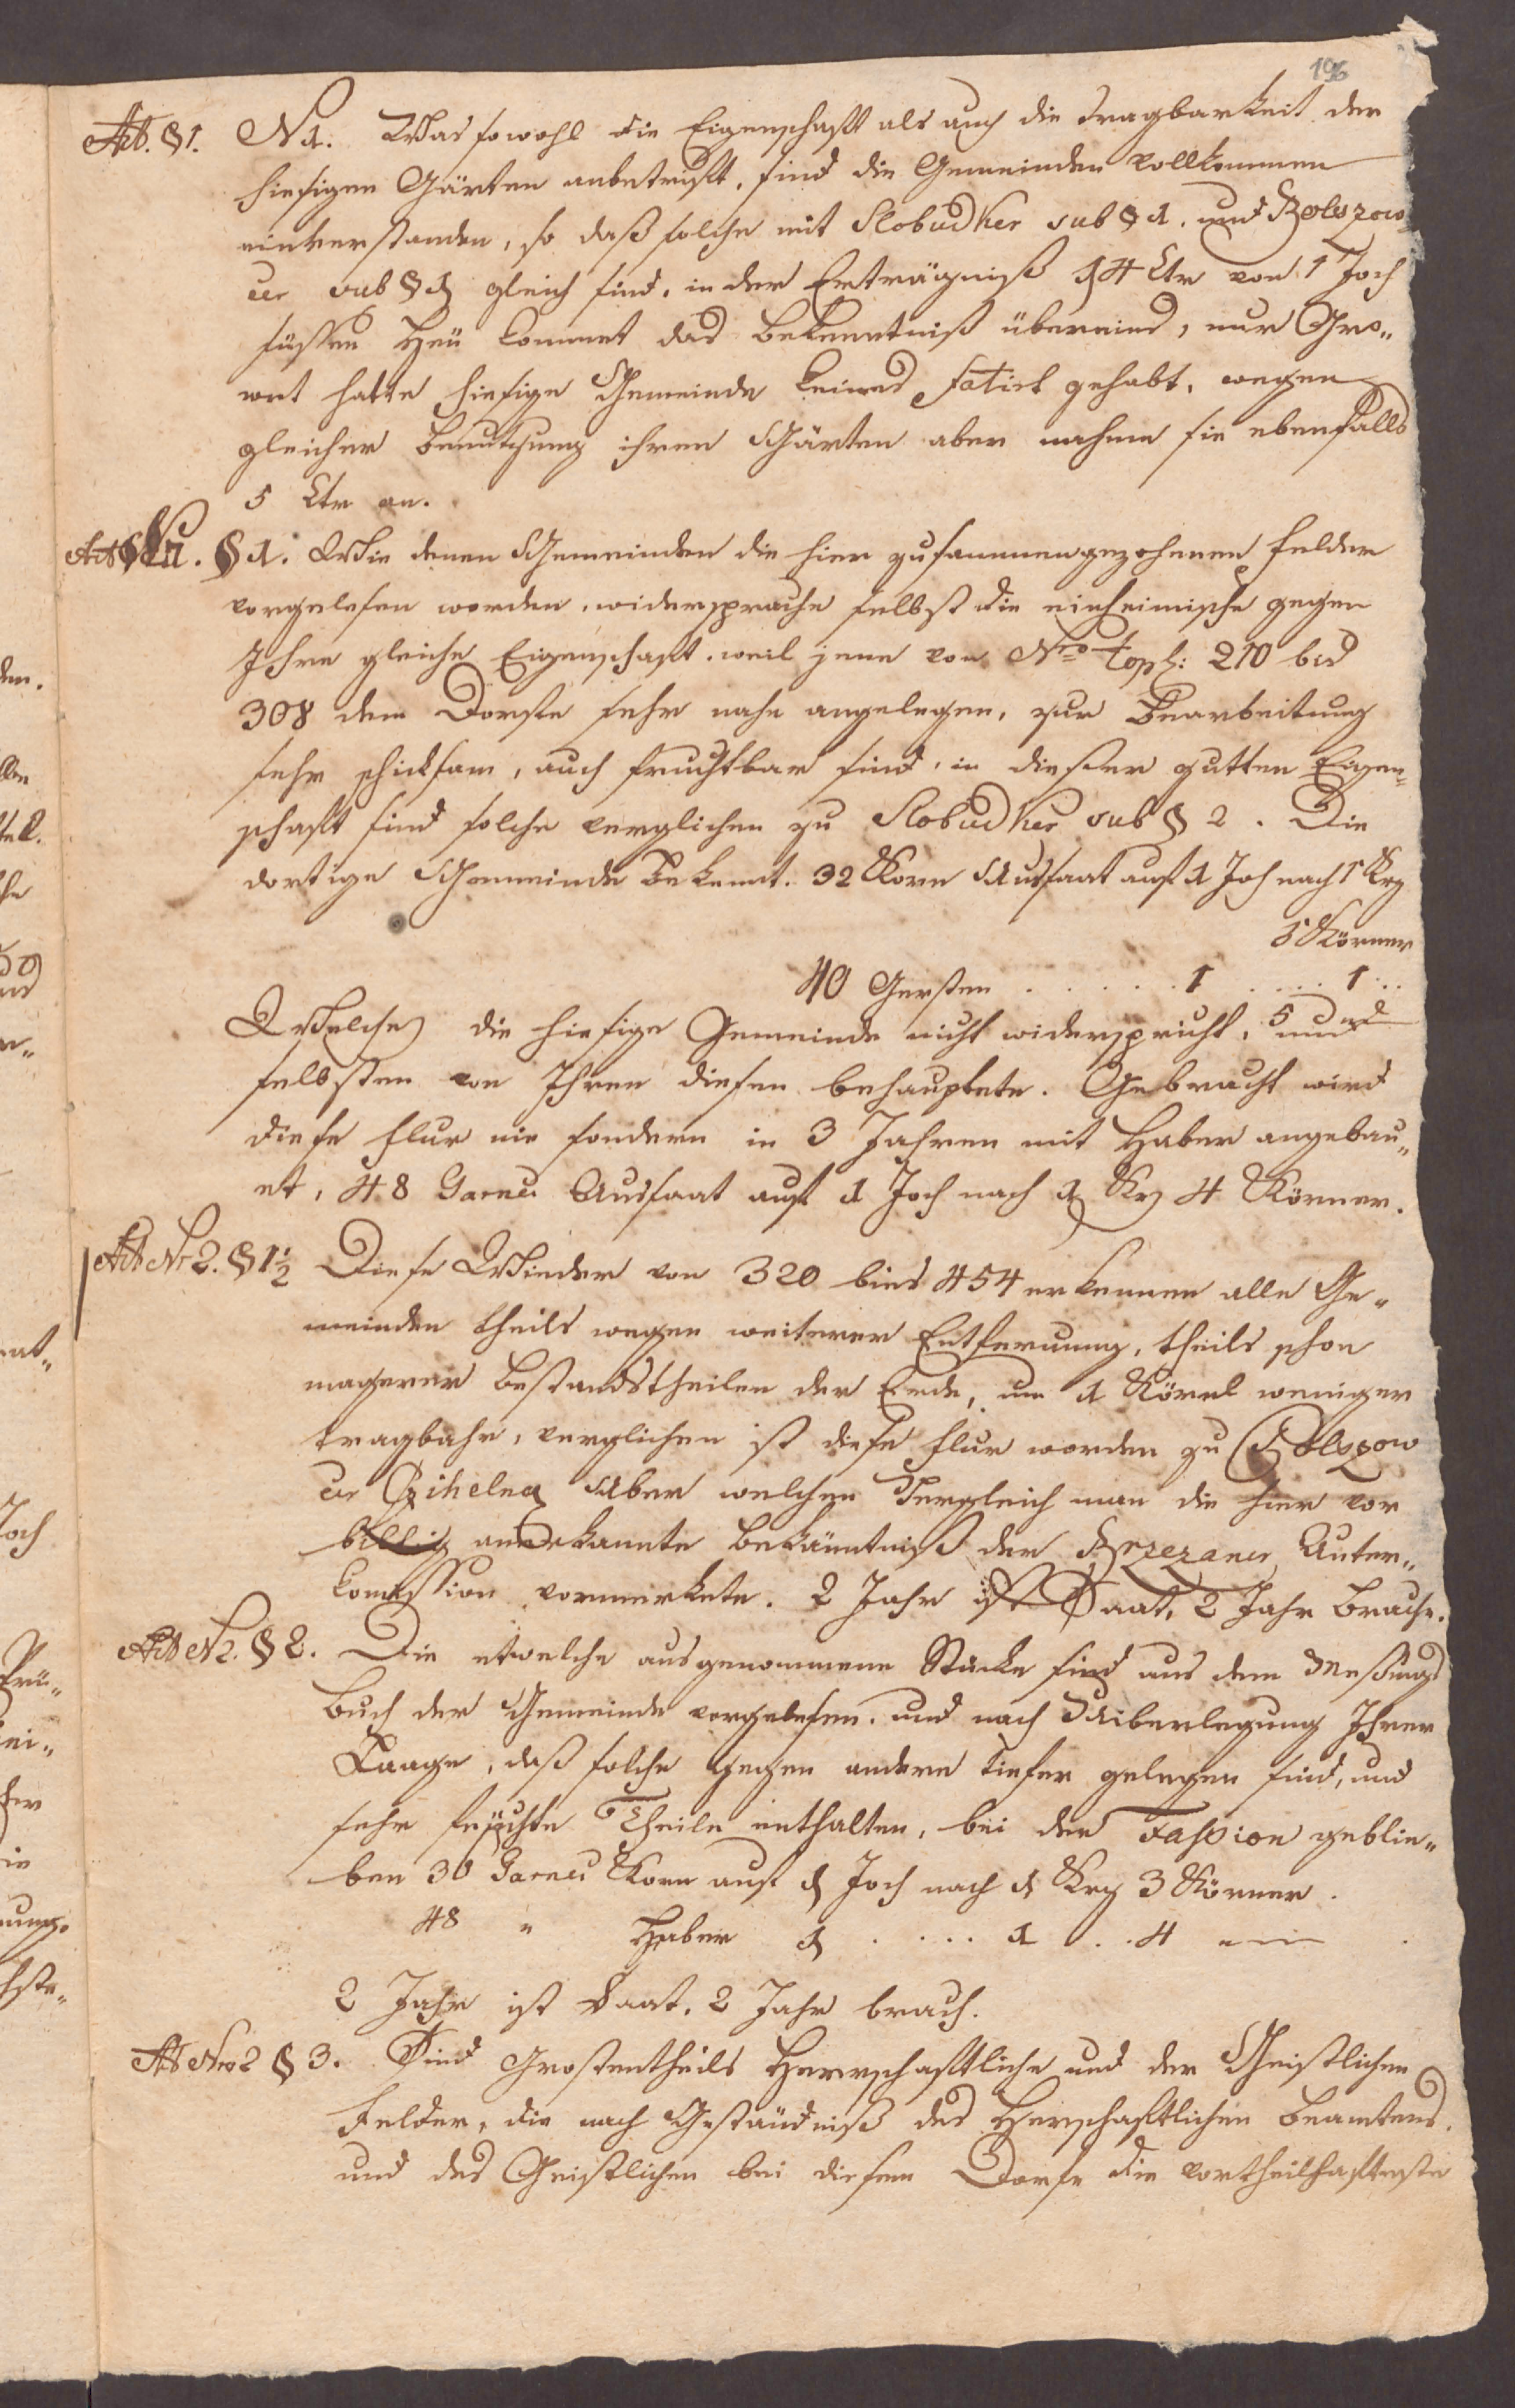 196
Act. § 1. N 1. Was sowohl die Eigenschaft als auch die Tragbarkeit der
hiesigen Gärten anbetrift, sind die Gemeinden vollkommen
einverstanden, so daß solche mit Slobudker sub § 1. und Bolszow
cer sub § 1 gleich sind, in der Erträgniß 4 Ctr von 1 Joch
süssen Heü kommet das Bekenntniß übereins, nur Gro„
met hatte hiesige Gemeinde keines fatirt gehabt, wegen
gleicher Benutzung ihren Gärten aber nahme sie ebenfalls
5 Ctr an.
§ 1. Wie denen Gemeinden die hier zusammengezohenen Felder
vorgelesen worden, widersprache selbst die einheimische gegen
Ihre gleiche Eigenschaft, weil jene von Nro Top: 210 bis
308 dem Dorfe sehr nahe angelegen, zur Bearbeitung
sehr schicksam, auch fruchtbar sind, in dieser gutten Eigen„
schaft sind solche verglichen zu Slobudker sub § 2. Die
dortige Gemeinde bekennt. 32 Korn Aussaat auf 1 Joh nach 1 Krz
5 Körner
40 Gersten . . . . . 1 . . . . 1 . .
5
Welches die hiesige Gemeinde nicht widerspricht, und
selbsten von Ihren diesen behauptete. Gebracht wird
diese Flur nie sondern in 3 Jahren mit Haber angebau„
et, 48 Garnei Aussaat auf 1 Joch nach 1 Krz 4 Körner.
Act Nr 2. § 1½ Diese Wieder von 320 bies 454 erkennen alle Ge„
meinden theils wegen weiterer Entfernung, theils schon
magerer Bestandstheilen der Erde, um 1 Körnl weniger
tragbahr, verglichen ist diese Flur worden zu Bolszow
cer Czihelna Uber welchen Vergleich man die hier vor
billig anerkannte Bekäntniß der Brzezaner Unter„
Comission vormerkete. 2 Jahr ist Saat, 2 Jahr Brache.
Act N 2. § 2. Die etwelche ausgenommene Stücke sind aus dem Meßungs
Buch der Gemeinde vorgelesen, und nach Uiberlegung Ihrer
Laage, daß solche gegen andere tiefer gelegen sind, und
sehr feuchte Theile enthalten, bei der Fassion geblie„
ben 30 Garnei Korn auf 1 Joch nach 1 Krz 3 Körner.
48 " Haber 1 . . . . 1 . . 4
2 Jahr ist Saat, 2 Jahr brach.
Act Nro 2 § 3. Sind Grostentheils Herrschaftliche und der Geistlichen
Felder, die nach Geständniß des Herschaftlichen Beamtens,
und des Geistlichen bei diesem Dorfe die vortheilhafteste